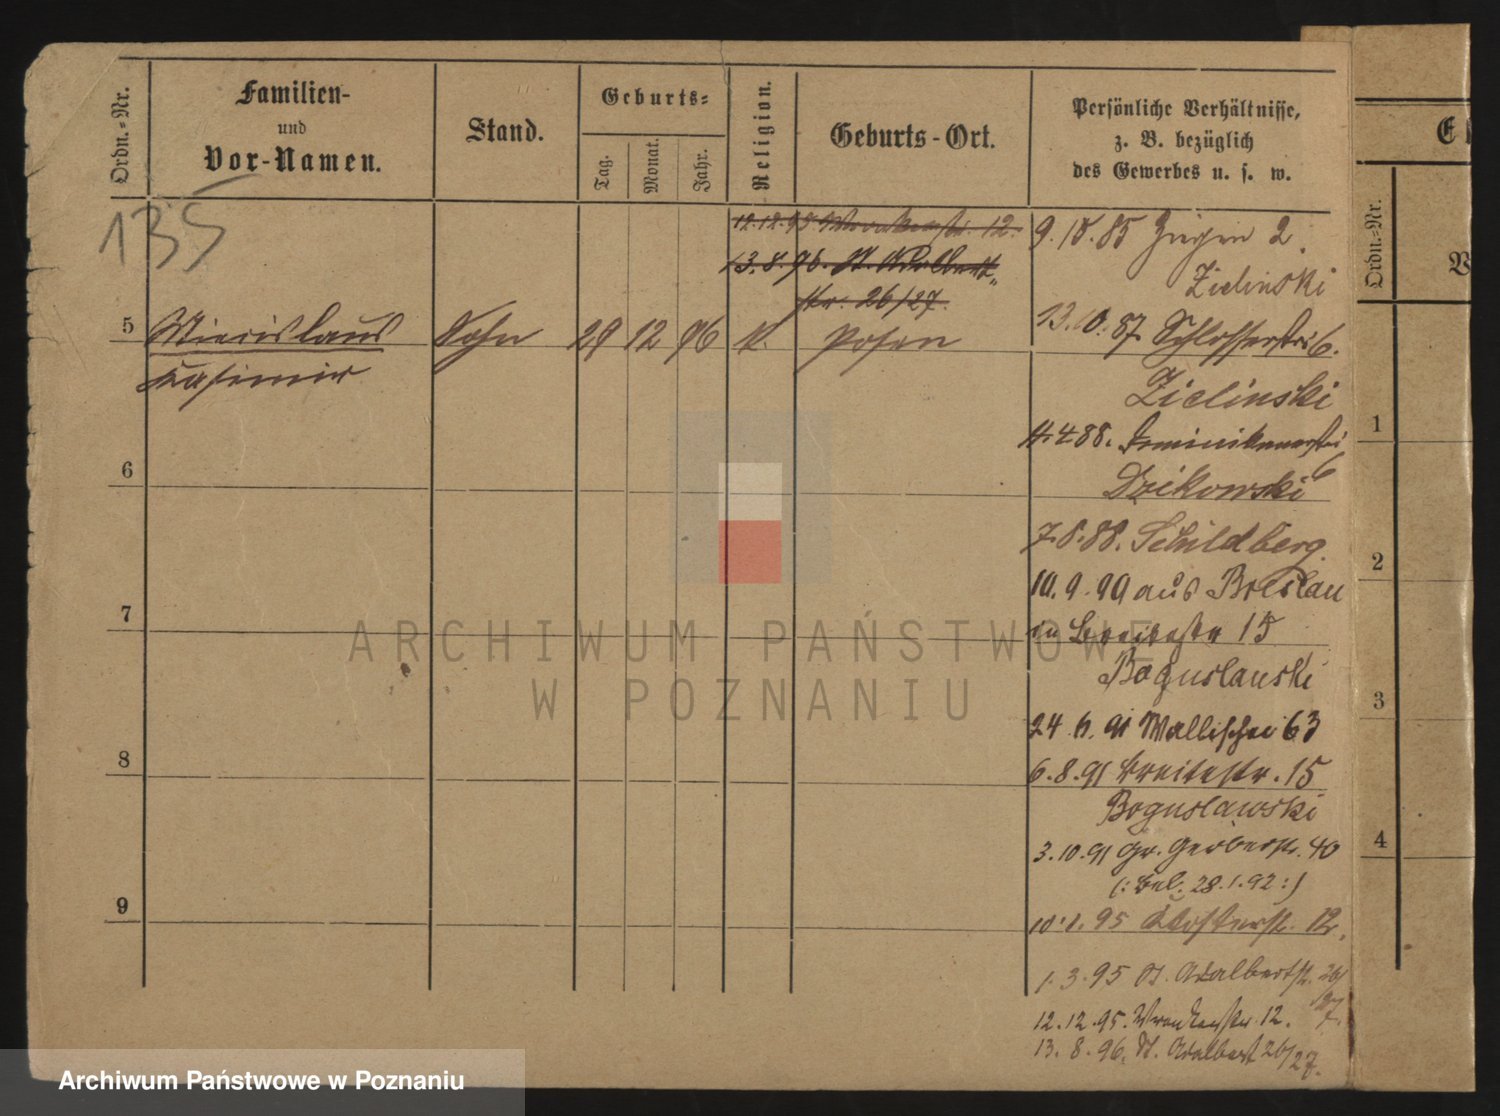 Ordn.-Nr.
Familien-
und
Vor-Namen.
Stand.
Geburts-
Tag.
Monat.
Jahr.
Religion.
Geburts-Ort.
Persönliche Verhältnisse,
z. B. bezüglich
des Gewerbes u. s. w.
135
12.12.95 Wronkerstr. 12.
13.8.96. St. Adalbert-
str. 26/27.
5 Miecislaus Sohn 29 12 96 k. Posen
Kasimir
6
7
8
9
9.10.85 Ziegen 2.
Zielinski
13.10.87 Schlosserstr. 6.
Zielinski
4.88. Dominikanerstr.
6
Dzikowski
7.8.88. Schildberg.
10.9.90 aus Breslau
in Breitestr 15
Boguslawski
24.6.91 Wallischei 63
6.8.91 Breitestr. 15
Boguslawski
3.10.91 Gr. Gerberstr. 40
(: 28.1.92 :)
10.1.95 Klosterstr. 12.
1.3.95 St. Adalbertstr. 26/
27.
12.12.95. Wronkerstr. 12.
13.8.96. St. Adalbert 26/27.
Ordn.-Nr.
1
2
3
4
ARCHIWUM PAŃSTWOWE
W POZNANIU
Archiwum Państwowe w Poznaniu